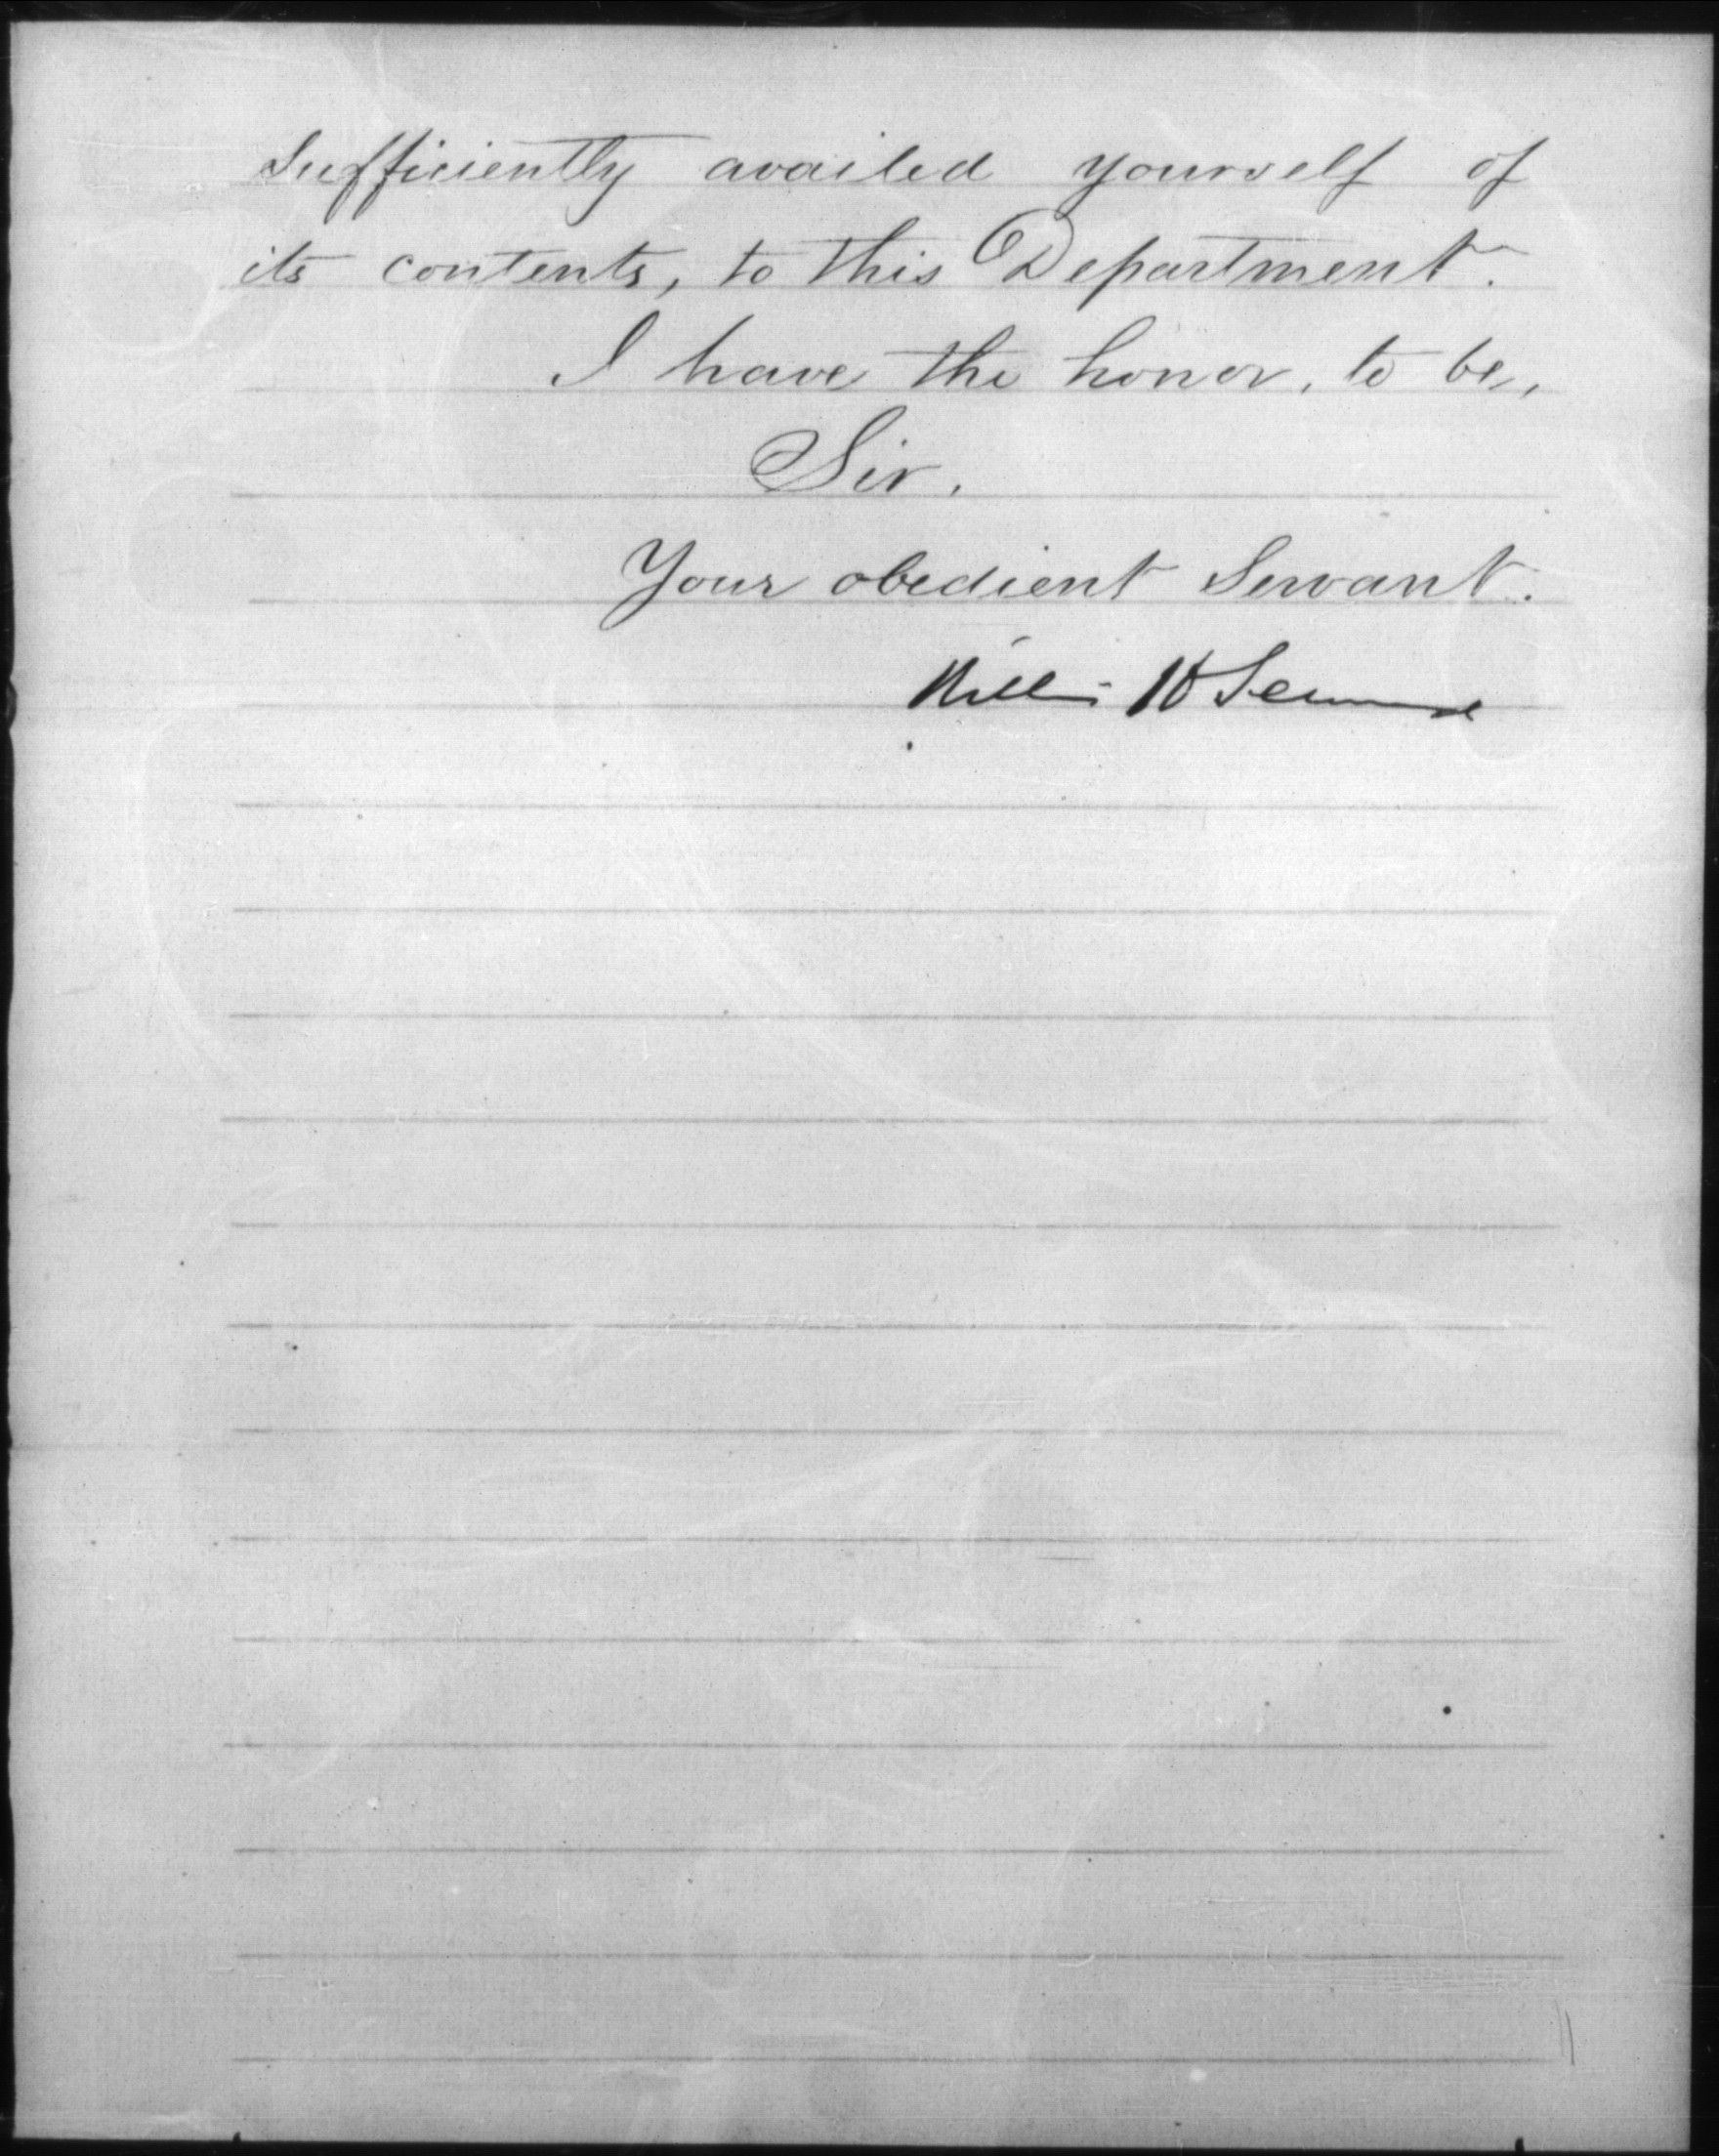 sufficiently availed yourself of
its contents, to this Department.
I have the honor, to be,
Sir,
Your obedient Servant.
William H Seward